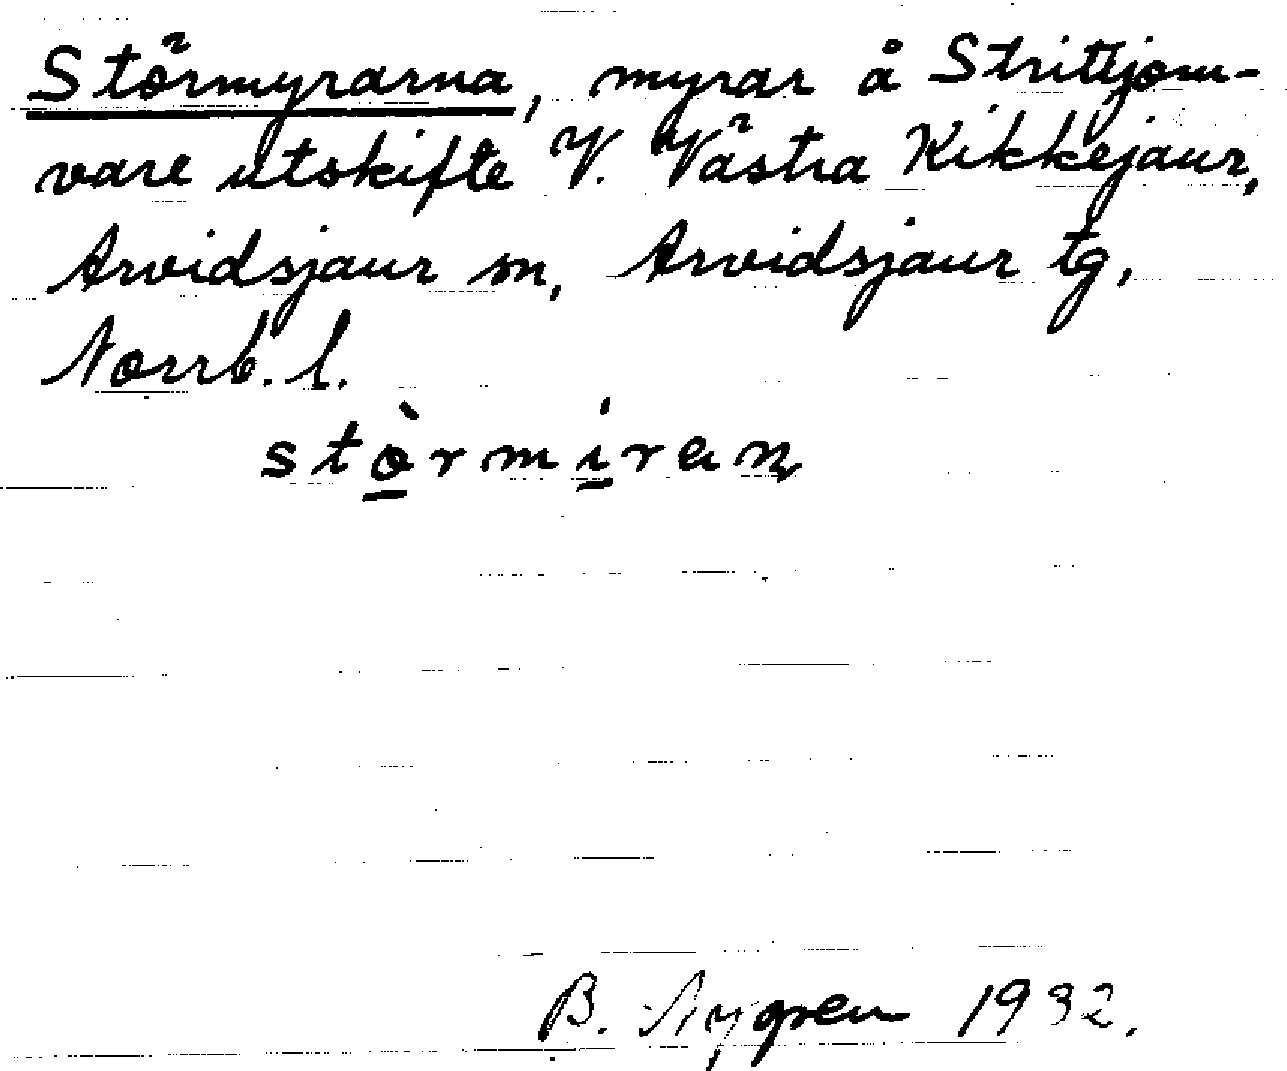 Störmyrarna, myrar å Strittjom-
vare utskifte V. Västra Kikkejaur,
Arvidsjaur sn, Arvidsjaur tg,
Norrb. l.
stòrmiran
B. Nygren 1932.